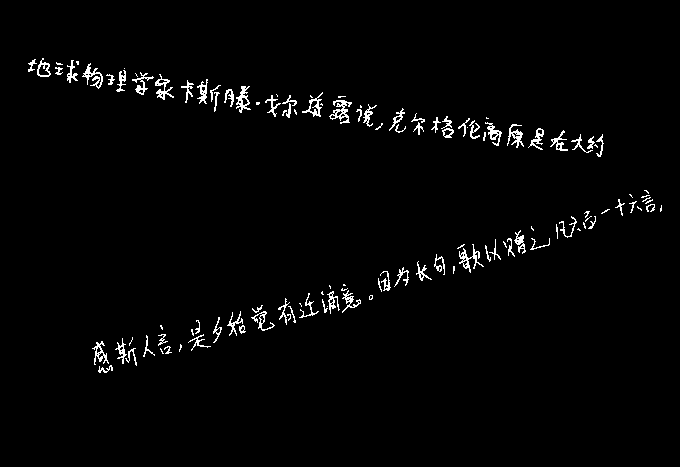 地球物理学家卡斯滕·戈尔兹露说,克尔格伦高原是在大约
感斯人言,是夕始觉有迁谪意。因为长句,歌以赠之,凡六百一十六言,